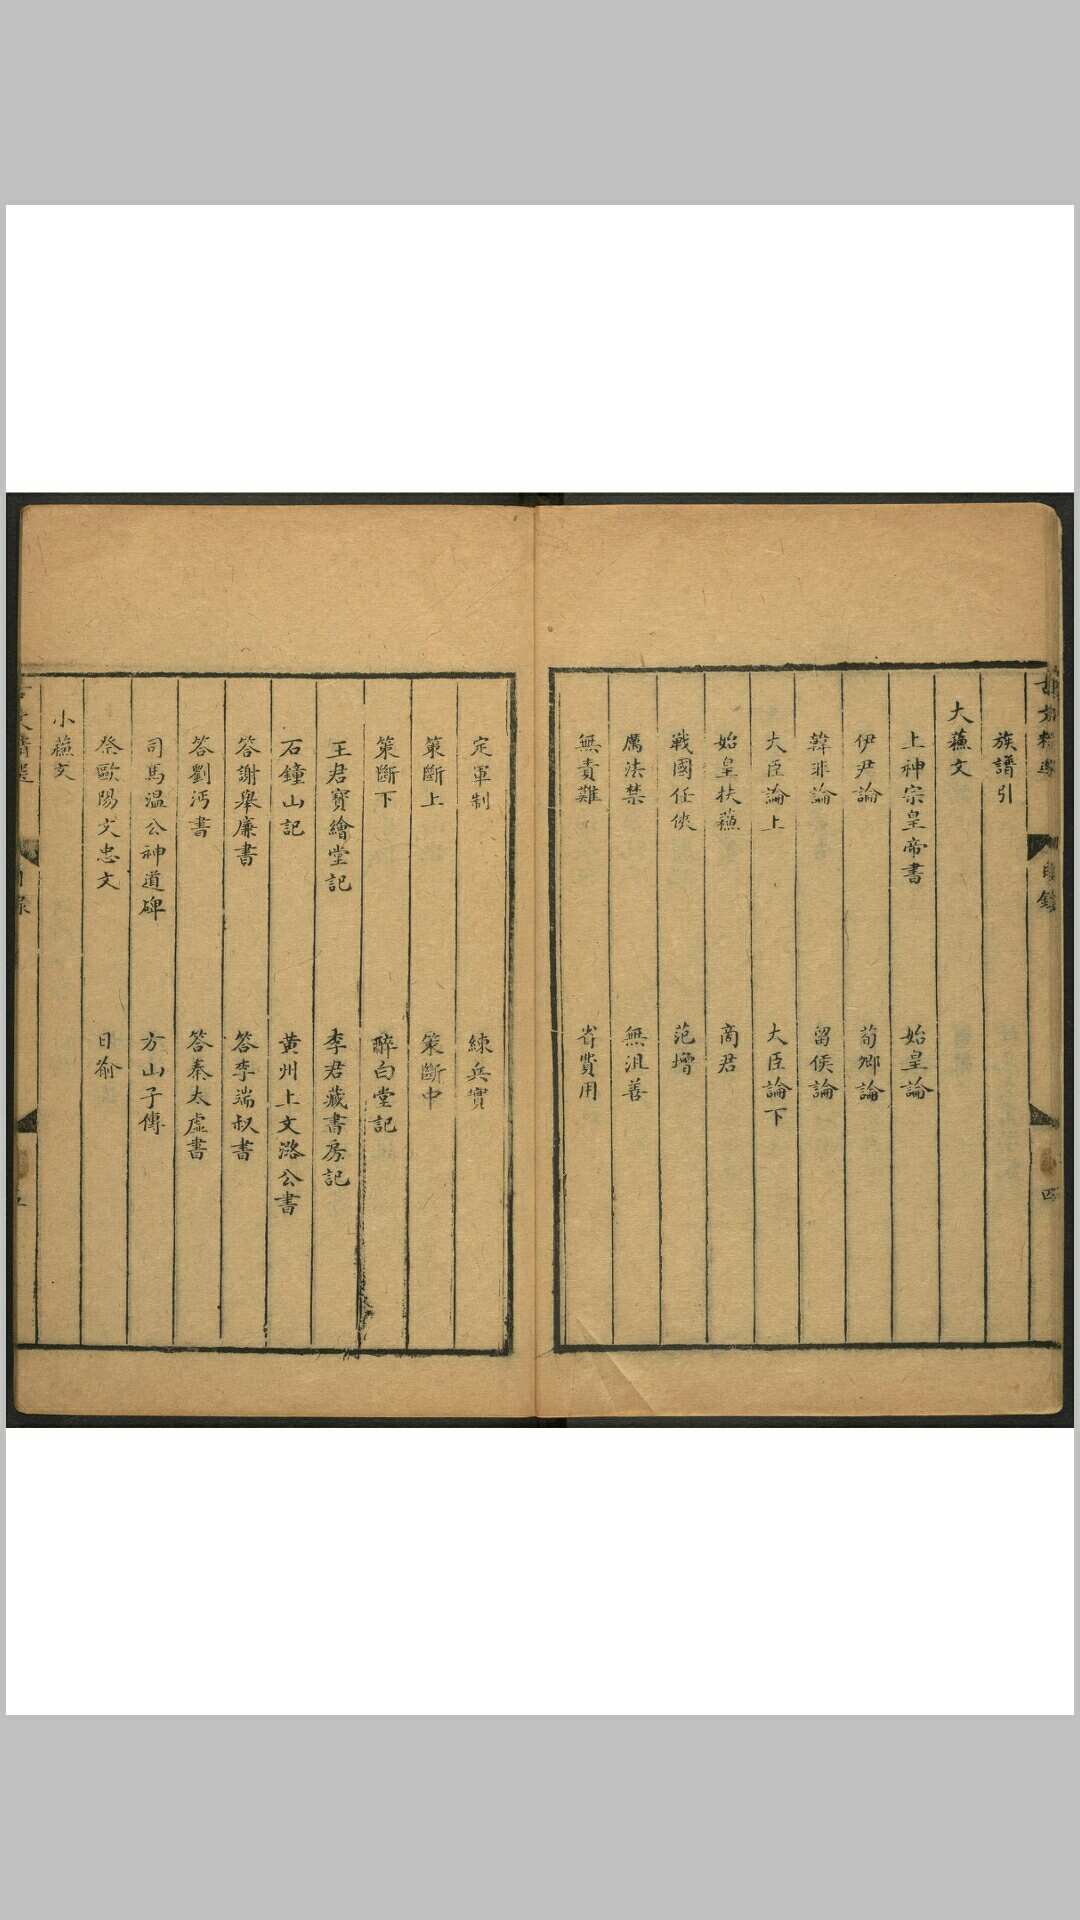 族譜引
大蘓文
上神宗皇帝書　始皇論
伊尹論　荀卿論
韓非論　留侯論
大臣論上　大臣論下
始皇扶蘓　商君
戰國任俠　范增
厲法禁　無沮善
無責難　省費用
目錄
四
定軍制　練兵實
策斷上　策斷中
策斷下　醉白堂記
王君寶繪堂記　李君藏書房記
石鐘山記　黃州上文潞公書
答謝舉廉書　答李端叔書
答劉沔書　答秦太虛書
司馬温公神道碑　方山子傳
祭歐陽文忠文　日喻
小蘓文